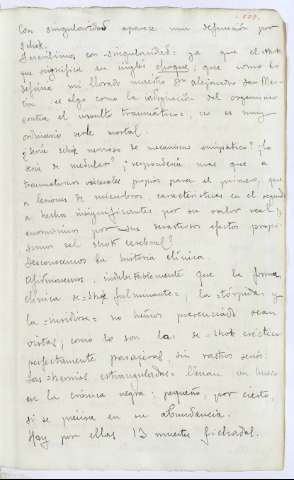 Con singularidad aparece una defunción por
Shok.
Describimos con singularidad: ya que el shok
que significa en inglés choque; que como lo
definía mi llorado maestro Dr Alejandro San Mar-
tín es algo como la indignación del organismo
contra el insulto traumático; no es muy
ordinario verle mortal.
¿Sería shok nervioso de mecanismo simpático? ¿lo
sería de medular? ¿respondería mas que a
traumatismos viscerales propios para el primero, que
a lesiones de miembros características en el segundo
a hechos insignificantes por su valor real y
enormísimos por sus desastrosos efectos propi-
simos del shok cerebral?
Desconocemos la historia clínica.
Afirmaremos indubitablemente que la forma
clínica de Shok fulminante; la tórpida y
la insidiosa no hemos presenciado sean
vistas; como lo son las de Shok eréctico
perfectamente pasajeras, sin rastro serio.
Las hernias estranguladas llenan un hueco
en la crónica negra; pequeño, por cierto,
si se piensa en su abundancia.
Hay por ellas 13 muertes fichadas.